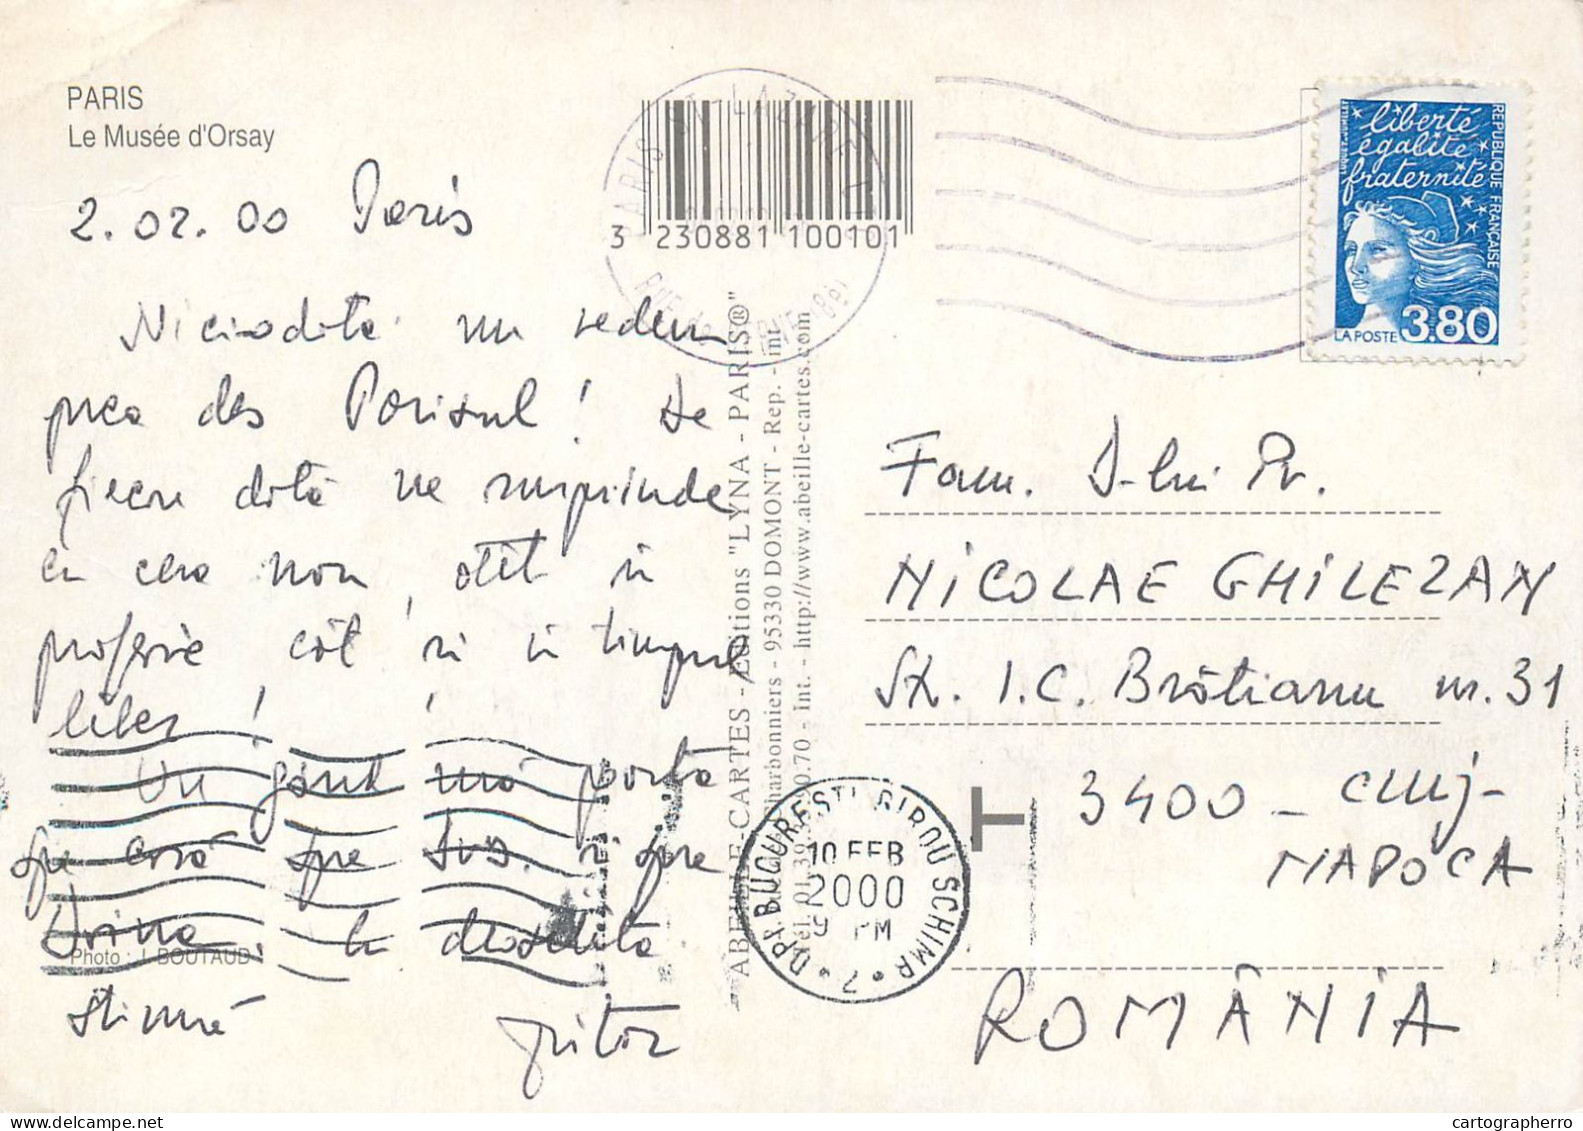 PARIS
Le Musée d'Orsay
2.02.00 Paris
Niciodată nu vedem
prea des Parisul! De
fiecare dată ne surprinde
cu ceva nou, atât în
profesie cât și în timpul
liber!
Un gând mă poartă
spre casă spre Dvs. și spre
Cu deosebită
stimă
Photo : J. BOUTAUD
3 230881 100101
PARIS ST-LAZARE
ABEILLE-CARTES - Editions "LYNA - PARIS®"
Charbonniers - 95330 DOMONT - Rep. - int.
Tél. 01.39 0.70 - Int. - http://www.abeille-cartes.com
liberté
égalité
fraternité
REPUBLIQUE FRANÇAISE
LA POSTE 3.80
Fam. D-lui Pr.
NICOLAE GHILEZAN
Str. I.C. Brătianu nr. 31
3400 - CLUJ-
NAPOCA
ROMÂNIA
T
BUCUREȘTI BIROU SCHIMB
10 FEB
2000
9 PM
7
cartographerro